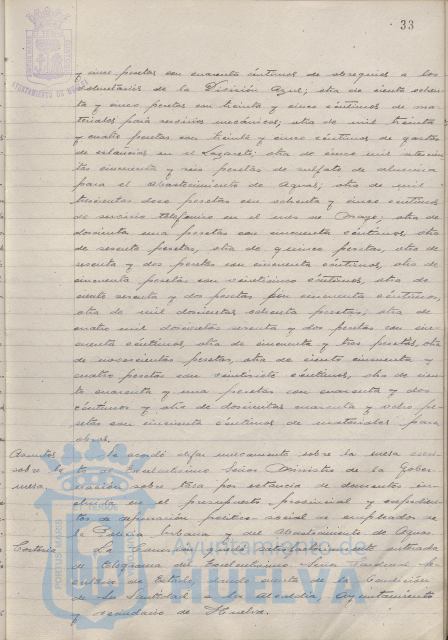 33
AYUNTAMIENTO DE HUELVA
y cinco pesetas con cuarenta céntimos de obsequios a los
voluntarios de la División Azul; otra de ciento ochen-
ta y cinco pesetas con treinta y cinco céntimos de ma-
teriales para servicios mecánicos; otra de mil treinta
y cuatro pesetas con treinta y cinco céntimos de gastos
de estancias en el Lazareto; otra de cinco mil
cincuenta y seis pesetas de sulfato de alumina
para el abastecimiento de Aguas; otra de mil
trescientas doce pesetas con ochenta y cinco céntimos
de servicio telefónico en el mes de Mayo; otra de
doscientas una pesetas con cincuenta céntimos, otra
de sesenta pesetas, otra de quince pesetas, otra de
sesenta y dos pesetas con cincuenta céntimos, otra de
cincuenta pesetas con veinticinco céntimos, otra de
ciento sesenta y dos pesetas con cincuenta céntimos,
otra de mil doscientas ochenta pesetas; otra de
cuatro mil doscientas sesenta y dos pesetas con cin-
cuenta céntimos, otra de cincuenta y tres pesetas, otra
de novecientas pesetas, otra de ciento cincuenta y
cuatro pesetas con veintisiete céntimos, otra de cien-
to cuarenta y una pesetas con cuarenta y dos
céntimos y otra de doscientas cuarenta y ocho pe-
setas con cincuenta céntimos de materiales para
obras.
Asuntos Se acordó dejar únicamente sobre la mesa
sobre la Excelentísimo Señor Ministro de la Gober-
mesa. nación sobre tasa por estancia de dementes in-
cluida en el presupuesto provincial y expedien-
tes de depuración político social de empleados de
la Policía Urbana y del Abastecimiento de Aguas.
Cortesía La Comisión quedó enterada
de telegrama del Excelentísimo Señor Cardenal Se-
cretario de Estado, dando cuenta de la bendición
de Su Santidad a la Alcaldía, Ayuntamiento
y vecindario de Huelva.
PORTUS MARIS
Ayuntamiento de
HUELVA